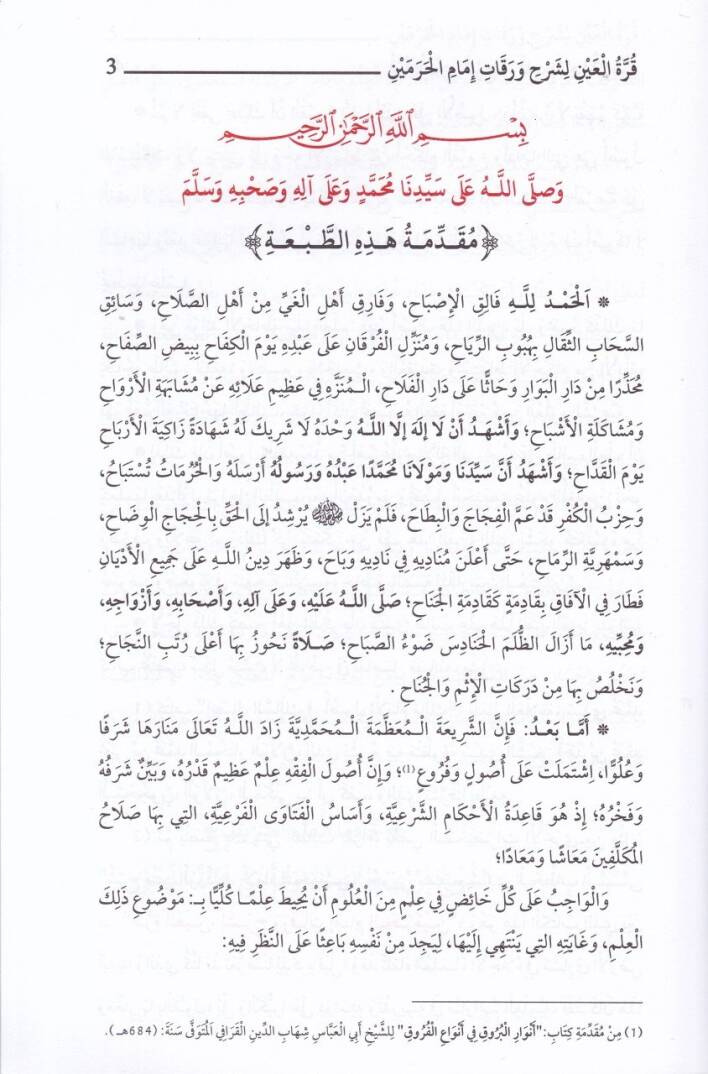 قُرَّةُ الْعَيْنِ لِشَرْحِ وَرَقَاتِ إِمَامِ الْحَرَمَيْنِ 3
بِسْمِ اللَّهِ الرَّحْمَنِ الرَّحِيمِ
وَصَلَّى اللَّهُ عَلَى سَيِّدِنَا مُحَمَّدٍ وَعَلَى آلِهِ وَصَحْبِهِ وَسَلَّمَ
﴿مُقَدِّمَةُ هَذِهِ الطَّبْعَةِ﴾
* اَلْحَمْدُ لِلَّهِ فَالِقِ الْإِصْبَاحِ، وَفَارِقِ أَهْلِ الْغَيِّ مِنْ أَهْلِ الصَّلَاحِ، وَسَائِقِ
السَّحَابِ الثِّقَالِ بِهُبُوبِ الرِّيَاحِ، وَمُنَزِّلِ الْفُرْقَانِ عَلَى عَبْدِهِ يَوْمَ الْكِفَاحِ بِبِيضِ الصِّفَاحِ،
مُحَذِّرًا مِنْ دَارِ الْبَوَارِ وَحَاثًّا عَلَى دَارِ الْفَلَاحِ، الْمُنَزَّهِ فِي عَظِيمِ عَلَائِهِ عَنْ مُشَابَهَةِ الْأَرْوَاحِ
وَمُشَاكَلَةِ الْأَشْبَاحِ؛ وَأَشْهَدُ أَنْ لَا إِلَهَ إِلَّا اللَّهُ وَحْدَهُ لَا شَرِيكَ لَهُ شَهَادَةً زَاكِيَةَ الْأَرْبَاحِ
يَوْمَ الْقِدَّاحِ؛ وَأَشْهَدُ أَنَّ سَيِّدَنَا وَمَوْلَانَا مُحَمَّدًا عَبْدُهُ وَرَسُولُهُ أَرْسَلَهُ وَالْحُرُمَاتُ تُسْتَبَاحُ،
وَحِزْبُ الْكُفْرِ قَدْ عَمَّ الْفِجَاجَ وَالْبِطَاحَ، فَلَمْ يَزَلْ ﷺ يُرْشِدُ إِلَى الْحَقِّ بِالْحِجَاجِ الْوِضَاحِ،
وَسَمْهَرِيَّةِ الرِّمَاحِ، حَتَّى أَعْلَنَ مُنَادِيهِ فِي نَادِيهِ وَبَاحَ، وَظَهَرَ دِينُ اللَّهِ عَلَى جَمِيعِ الْأَدْيَانِ
فَطَارَ فِي الْآفَاقِ بِقَادِمَةٍ كَقَادِمَةِ الْجَنَاحِ؛ صَلَّى اللَّهُ عَلَيْهِ، وَعَلَى آلِهِ، وَأَصْحَابِهِ، وَأَزْوَاجِهِ،
وَمُحِبِّيهِ، مَا أَزَالَ الظُّلَمَ الْحَنَادِسَ ضَوْءُ الصَّبَاحِ؛ صَلَاةً نَحُوزُ بِهَا أَعْلَى رُتَبِ النَّجَاحِ؛
وَنَخْلُصُ بِهَا مِنْ دَرَكَاتِ الْإِثْمِ وَالْجُنَاحِ.
* أَمَّا بَعْدُ: فَإِنَّ الشَّرِيعَةَ الْمُعَظَّمَةَ الْمُحَمَّدِيَّةَ زَادَ اللَّهُ تَعَالَى مَنَارَهَا شَرَفًا
وَعُلُوًّا، اِشْتَمَلَتْ عَلَى أُصُولٍ وَفُرُوعٍ(1)؛ وَإِنَّ أُصُولَ الْفِقْهِ عِلْمٌ عَظِيمٌ قَدْرُهُ، وَبَيِّنٌ شَرَفُهُ
وَفَخْرُهُ؛ إِذْ هُوَ قَاعِدَةُ الْأَحْكَامِ الشَّرْعِيَّةِ، وَأَسَاسُ الْفَتَاوَى الْفَرْعِيَّةِ، التِي بِهَا صَلَاحُ
الْمُكَلَّفِينَ مَعَاشًا وَمَعَادًا؛
وَالْوَاجِبُ عَلَى كُلِّ خَائِضٍ فِي عِلْمٍ مِنَ الْعُلُومِ أَنْ يُحِيطَ عِلْمًا كُلِّيًّا بِـ: مَوْضُوعِ ذَلِكَ
الْعِلْمِ، وَغَايَتِهِ التِي يَنْتَهِي إِلَيْهَا، لِيَجِدَ مِنْ نَفْسِهِ بَاعِثًا عَلَى النَّظَرِ فِيهِ:
(1) مِنْ مُقَدِّمَةِ كِتَابِ: "أَنْوَارِ الْبُرُوقِ فِي أَنْوَاعِ الْفُرُوقِ" لِلشَّيْخِ أَبِي الْعَبَّاسِ شِهَابِ الدِّينِ الْقَرَافِي الْمُتَوَفَّى سَنَةَ: (684هـ).